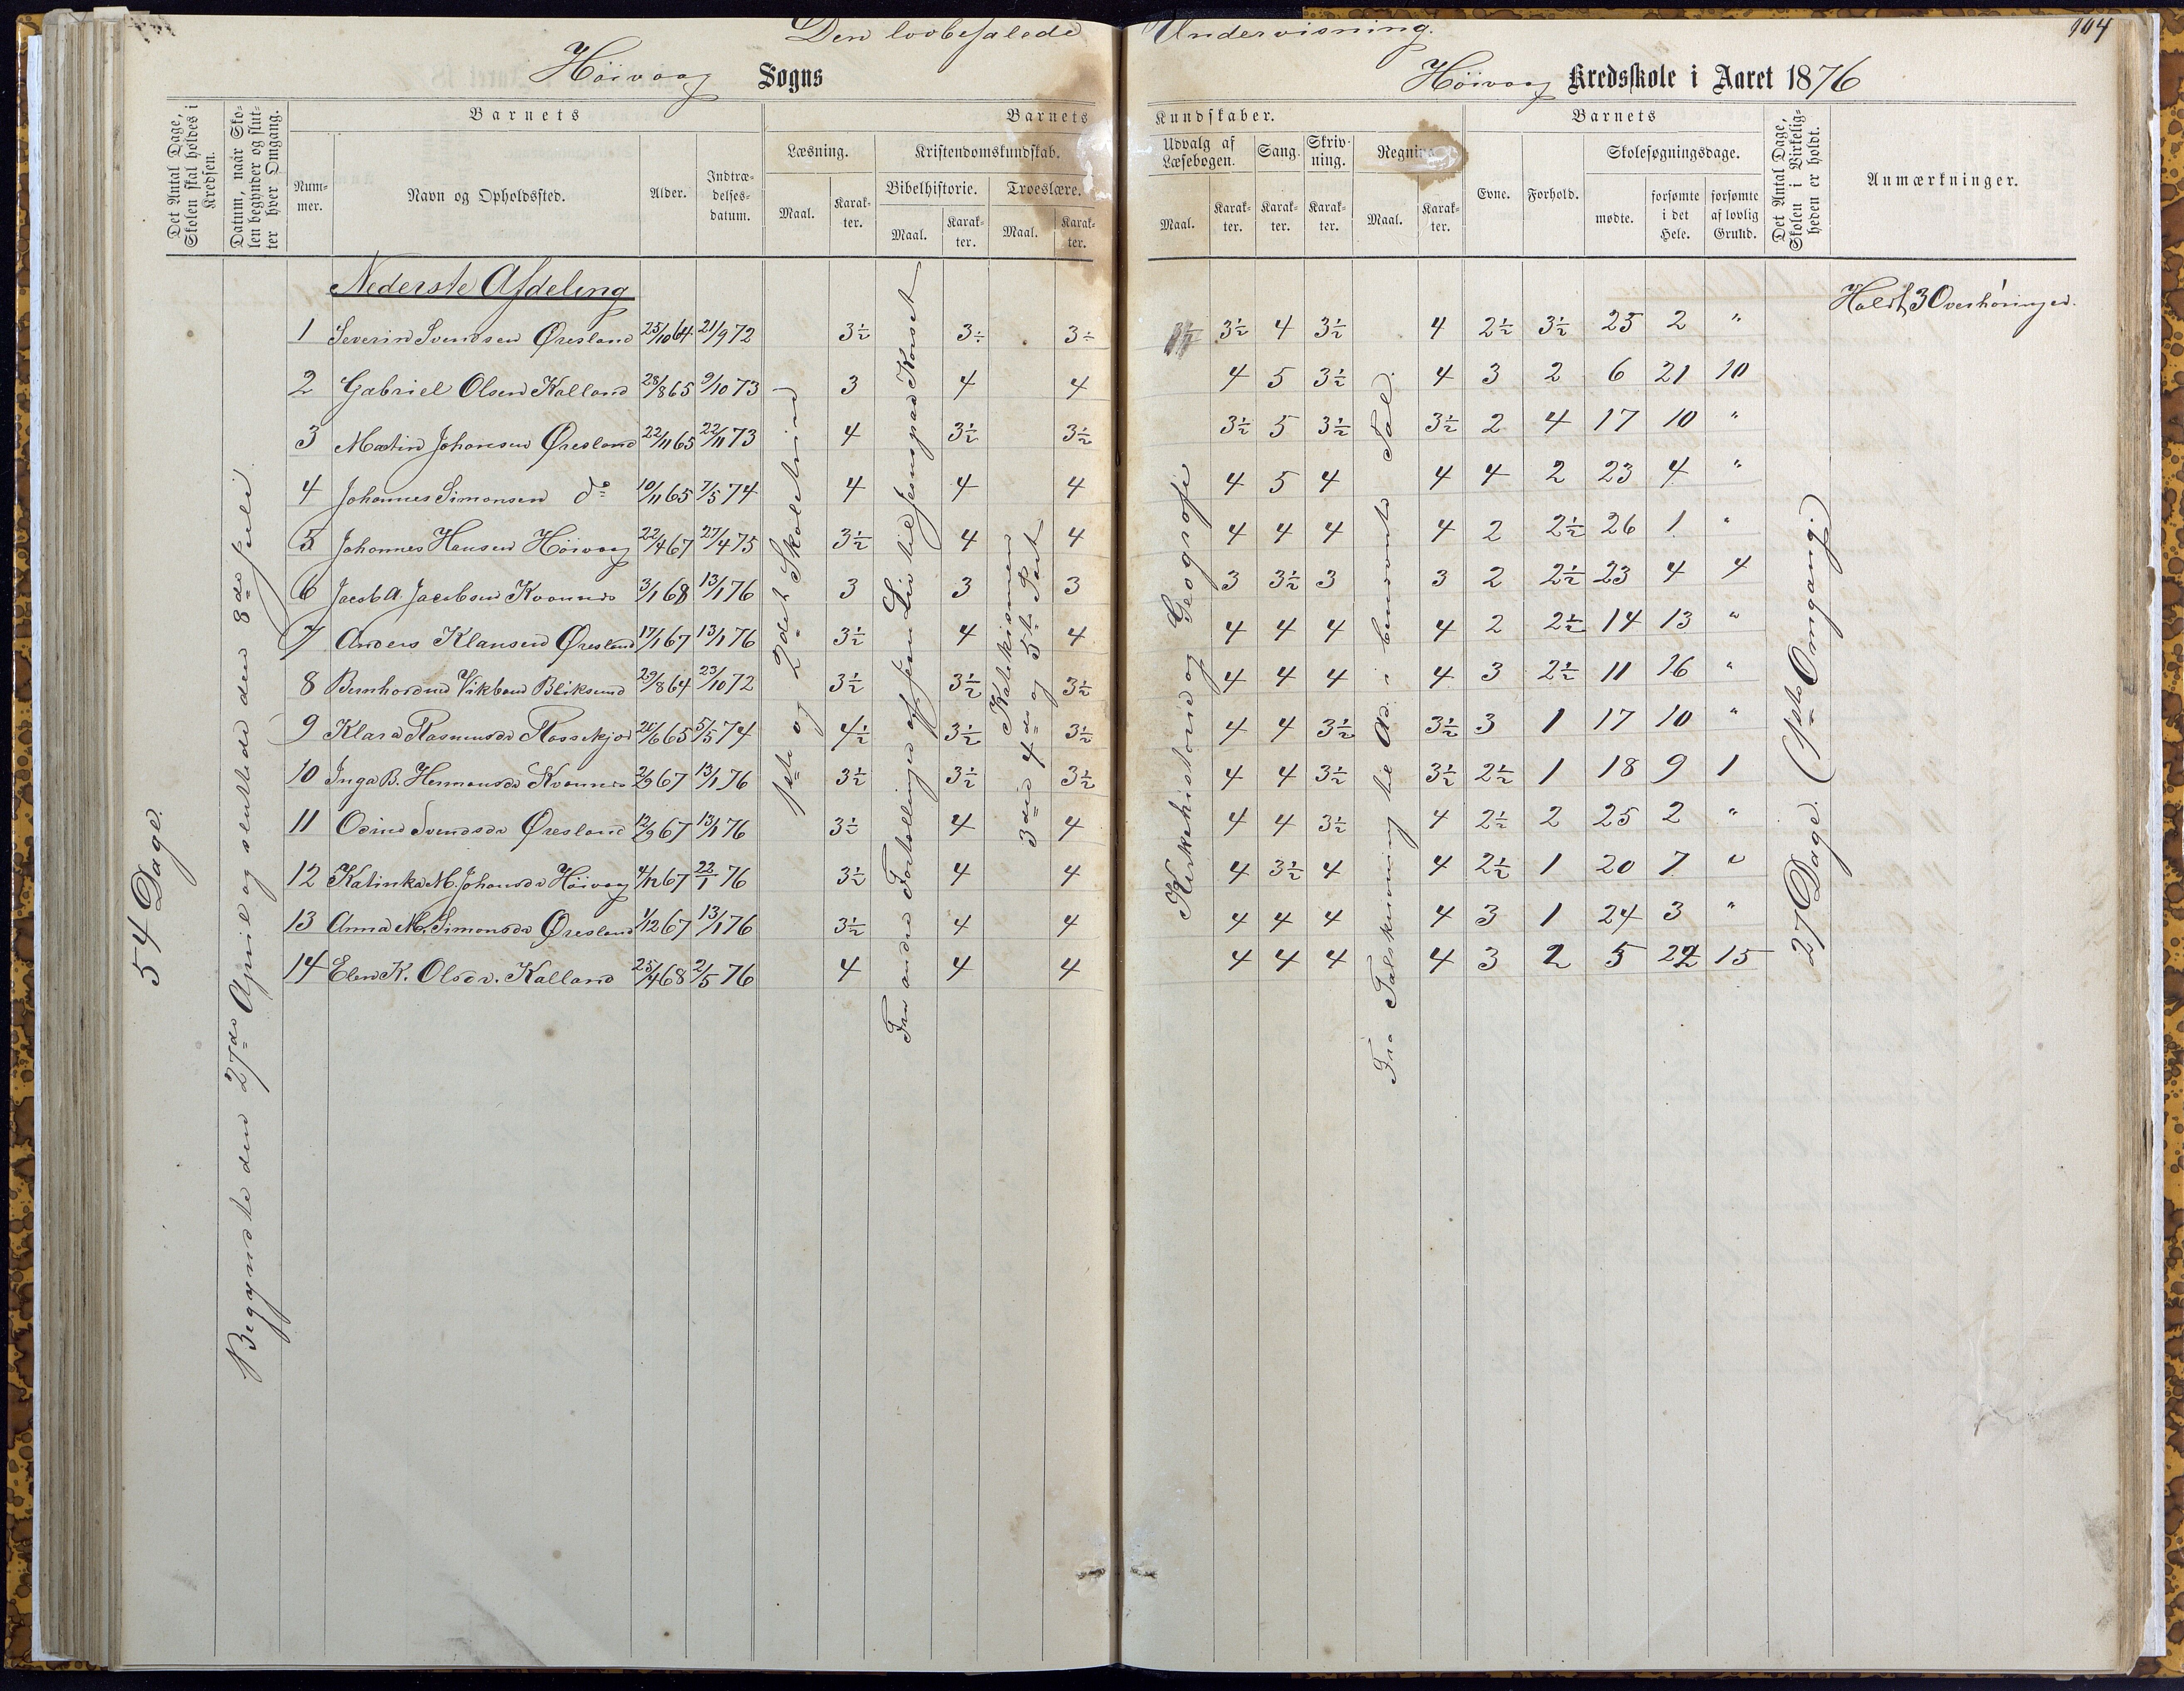 Den lovbefalede Undervisning.
104
Höivaag Sogns
Höivaag Kredsskole i Aaret 1876
Det Antal Dage, Skolen skal holdes i Kredsen.
Datum, naar Skolen begynder og slutter hver Omgang.
Barnets
Nummer.
Navn og Opholdssted.
Alder.
Indtrædelsesdatum.
Barnets Kundskaber.
Læsning.
Maal.
Karakter.
Kristendomskundskab.
Bibelhistorie.
Maal.
Karakter.
Troeslære.
Maal.
Karakter.
Udvalg af Læsebogen.
Maal.
Karakter.
Sang.
Karakter.
Skrivning.
Karakter.
Maal.
Karakter.
Barnets
Evne.
Forhold.
Skolesøgningsdage.
mødte.
forsømte i det Hele.
forsømte af lovlig Grund.
Det Antal Dage, Skolen i Virkeligheden er holdt.
Anmærkninger.
54 Dage.
Begyndte den 27de April og sluttede den 8de Juli
1ste og 2det Skoletrin
Fra andre Fortællinger af Jesu Liv til Jesus paa Korset
Katekismen
3die 4de og 5te Part
Kirkehistorie og Geografi
Fra Talskrivning til Ad. i benævnte Tal.
27 Dage. (1ste Omgang)
Holdt 3 Overhøringer.
Nederste Afdeling
1 Severin Svendsen Øresland 25/10 64 21/9 72 3½ 3÷ 3÷ 3½ 4 3½ 4 2½ 3½ 25 2 "
2 Gabriel Olsen Kalland 28/8 65 9/10 73 3 4 4 4 5 3½ 4 3 2 6 21 10
3 Martin Johansen Øresland 22/11 65 22/11 73 4 3½ 3½ 3½ 5 3½ 3½ 2 4 17 10 "
4 Johannes Simonsen do 10/11 65 7/5 74 4 4 4 4 5 4 4 4 2 23 4 "
5 Johannes Hansen Höivaag 22/4 67 27/4 75 3½ 4 4 4 4 4 4 2 2½ 26 1 "
6 Jacob A. Jacobsen Kvannes 3/1 68 13/1 76 3 3 3 3 3½ 3 3 2 2½ 23 4 4
7 Anders Klausen Øresland 17/1 67 13/1 76 3½ 4 4 4 4 4 4 2 2½ 14 13 "
8 Bernhardine Bliksund 29/8 64 23/10 72 3½ 3½ 3½ 4 4 4 4 3 2½ 11 16 "
9 Klara Rasmusdr 26/6 65 5/5 74 4½ 3½ 3½ 4 4 3½ 3½ 3 1 17 10 "
10 Inga B. Hermansdr Kvannes 2/9 67 13/1 76 3½ 3½ 3½ 4 4 3½ 3½ 2½ 1 18 9 1
11 Odine Svendsdr Øresland 12/9 67 13/1 76 3½ 4 4 4 4 3½ 4 2½ 2 25 2 "
12 Katinka M. Johansdr Höivaag 4/12 67 22/1 76 3½ 4 4 4 3½ 4 4 2½ 1 20 7 "
13 Anna M. Simonsdr Øresland 1/12 67 13/1 76 3½ 4 4 4 4 4 4 3 1 24 3 "
14 Elen K. Olsdr. Kalland 25/4 68 2/5 76 4 4 4 4 4 4 4 3 2 5 22 15